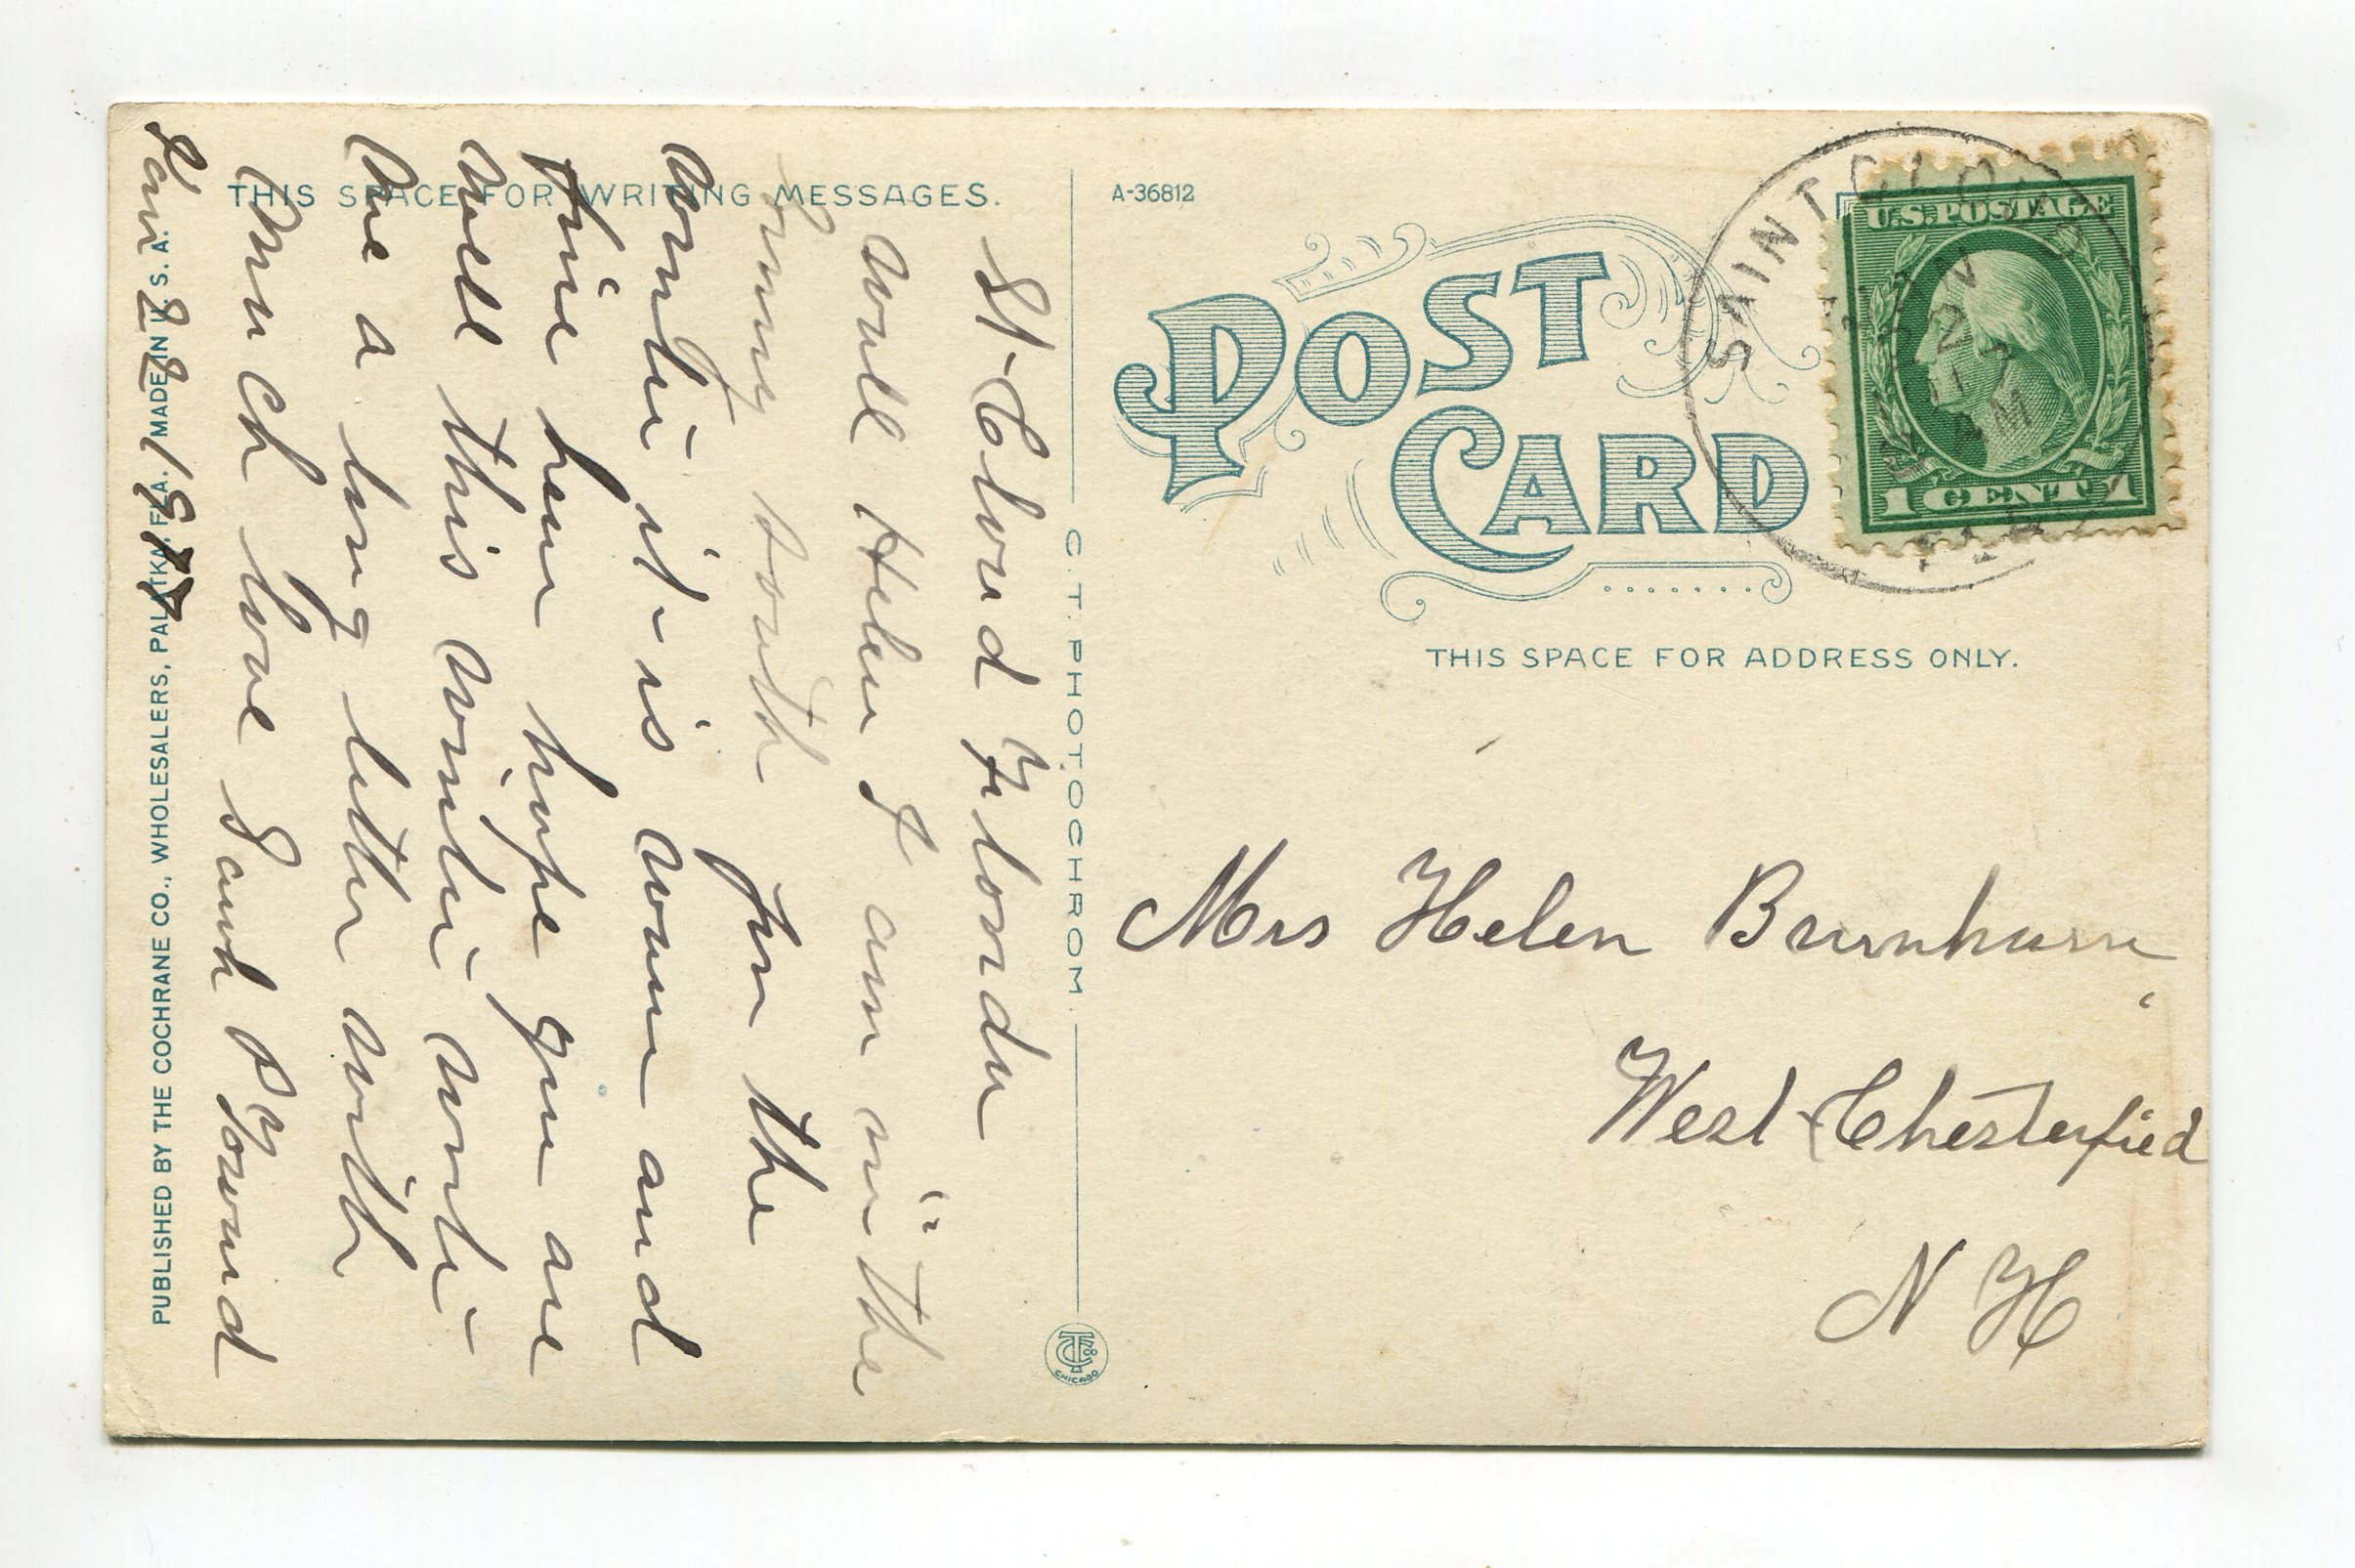 THIS SPACE FOR WRITING MESSAGES.
St-Cloud Florida
Well Helen I am in the
Sunny South for the
winter it is warm and
fine here hope you are
well this winter write
me a long letter with
much love Sarah
Jan 22 1917
PUBLISHED BY THE COCHRANE CO., WHOLESALERS, PALATKA, FLA. MADE IN U. S. A.
C. T. PHOTOCHROM
CHICAGO
A-36812
POST
CARD
SAINT CLOUD
AM
U.S. POSTAGE
1 CENT 1
THIS SPACE FOR ADDRESS ONLY.
Mrs Helen Burnham
West Chesterfied
N H